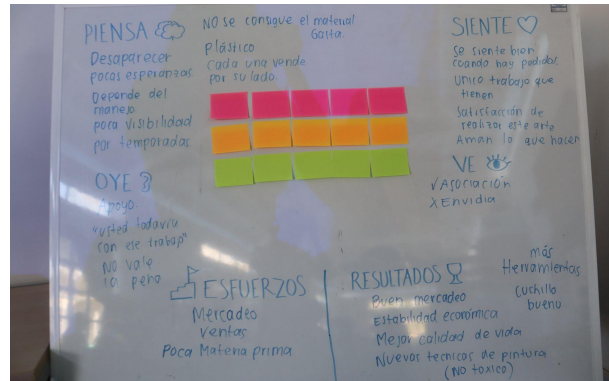 PIENSA
Desaparecer
pocas esperanzas.
Depende del
manejo
poca visibilidad
por temporadas
NO se consigue el material
Gaita.
plástico
cada una vende
por su lado.
SIENTE
Se siente bien
cuando hay pedidos.
Unico trabajo que
tienen
Satisfacción de
realizar este arte
Aman lo que hacen
OYE
Apoyo.
"usted todavía
con ese trabajo"
NO vale
la pena
VE
√ Asociación
X Envidia
ESFUERZOS
Mercadeo
Ventas
Poca Materia prima
RESULTADOS
Buen mercadeo
Estabilidad económica
Mejor calidad de vida
Nuevas tecnicas de pintura
(No toxico)
más
Herramientas
cuchillo
bueno